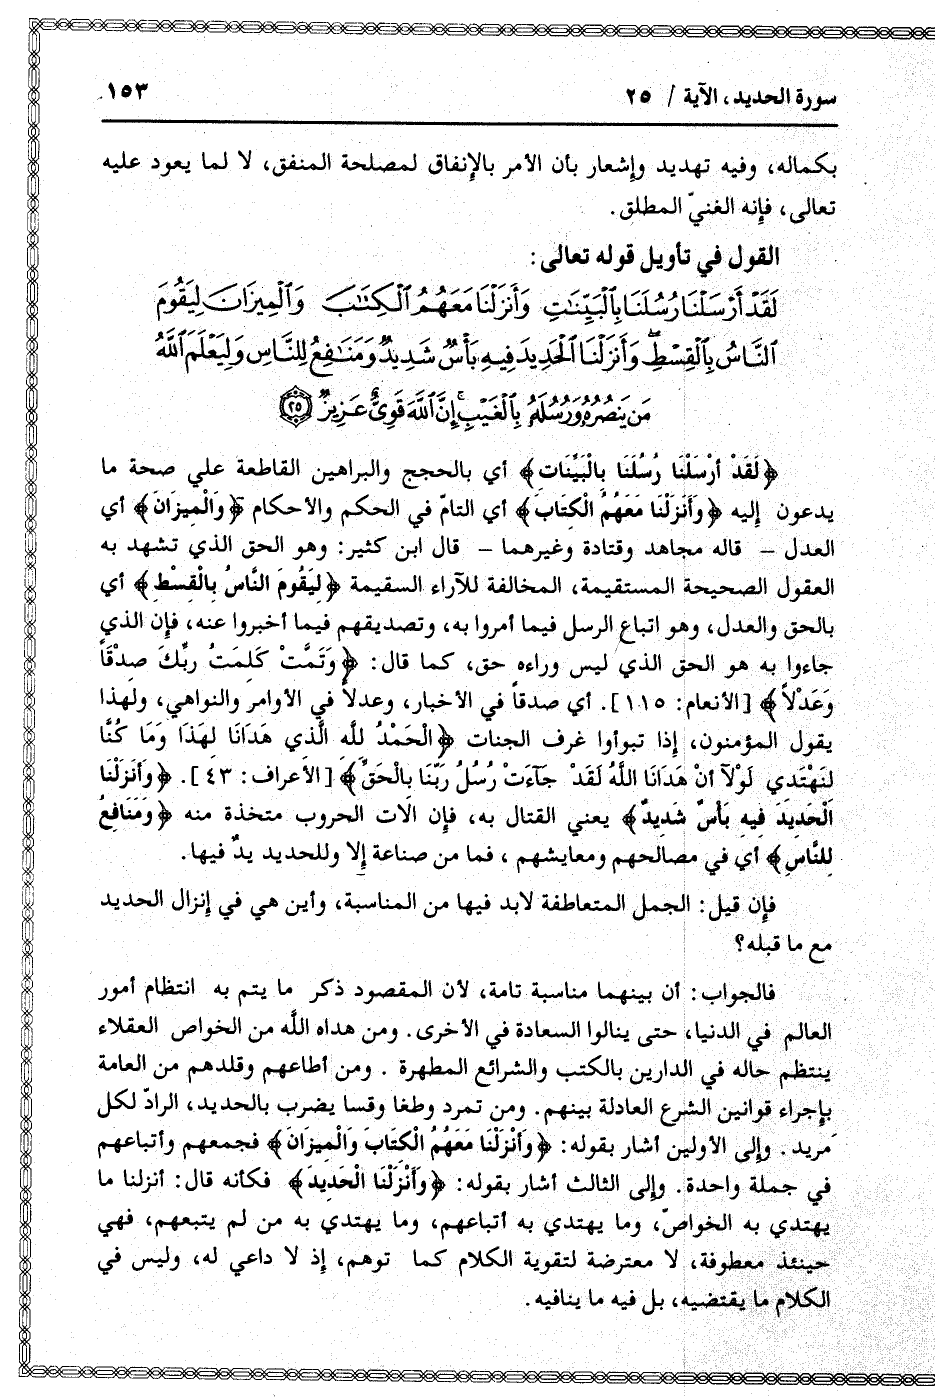 سورة الحديد، الآية / ٢٥
١٥٣
بكماله، وفيه تهديد وإشعار بأن الأمر بالإنفاق لمصلحة المنفق، لا لما يعود عليه
تعالى، فإنه الغنيّ المطلق.
القول في تأويل قوله تعالى:
لَقَدْ أَرْسَلْنَا رُسُلَنَا بِالْبَيِّنَٰتِ وَأَنزَلْنَا مَعَهُمُ ٱلْكِتَٰبَ وَٱلْمِيزَانَ لِيَقُومَ
ٱلنَّاسُ بِٱلْقِسْطِ ۖ وَأَنزَلْنَا ٱلْحَدِيدَ فِيهِ بَأْسٌ شَدِيدٌ وَمَنَٰفِعُ لِلنَّاسِ وَلِيَعْلَمَ ٱللَّهُ
مَن يَنصُرُهُۥ وَرُسُلَهُۥ بِٱلْغَيْبِ ۚ إِنَّ ٱللَّهَ قَوِىٌّ عَزِيزٌ ٢٥
﴿لَقَدْ أرْسَلْنَا رُسُلَنَا بِالْبَيِّنَات﴾ أي بالحجج والبراهين القاطعة علي صحة ما
يدعون إليه ﴿وأَنزَلْنَا مَعَهُمُ الْكِتَابَ﴾ أي التامّ في الحكم والأحكام ﴿وَالْمِيزَانَ﴾ أي
العدل – قاله مجاهد وقتادة وغيرهما – قال ابن كثير: وهو الحق الذي تشهد به
العقول الصحيحة المستقيمة، المخالفة للآراء السقيمة ﴿لِيَقُومَ النَّاسُ بِالْقِسْط﴾ أي
بالحق والعدل، وهو اتباع الرسل فيما أمروا به، وتصديقهم فيما أخبروا عنه، فإن الذي
جاءوا به هو الحق الذي ليس وراءه حق، كما قال: ﴿وَتَمَّتْ كَلِمَتُ رَبِّكَ صِدْقاً
وَعَدْلاً﴾ [الأنعام: ١١٥]. أي صدقاً في الأخبار، وعدلاً في الأوامر والنواهي، ولهذا
يقول المؤمنون، إذا تبوأوا غرف الجنات ﴿الْحَمْدُ لِلَّهِ الَّذي هَدَانَا لِهَذَا وَمَا كُنَّا
لِنَهْتَدي لَوْلآ أنْ هَدَانَا اللَّهُ لَقَدْ جآءَتْ رُسُلُ رَبِّنَا بِالْحَقِّ﴾ [الأعراف: ٤٣]. ﴿وأَنزَلْنَا
الْحَدِيدَ فِيهِ بَأْسٌ شَدِيدٌ﴾ يعني القتال به، فإن آلات الحروب متخذة منه ﴿وَمَنَافِعُ
لِلنَّاسِ﴾ أي في مصالحهم ومعايشهم، فما من صناعة إلا وللحديد يدٌ فيها.
فإن قيل: الجمل المتعاطفة لابد فيها من المناسبة، وأين هي في إنزال الحديد
مع ما قبله؟
فالجواب: أن بينهما مناسبة تامة، لأن المقصود ذكر ما يتم به انتظام أمور
العالم في الدنيا، حتى ينالوا السعادة في الأخرى. ومن هداه اللَّه من الخواص العقلاء
ينتظم حاله في الدارين بالكتب والشرائع المطهرة . ومن أطاعهم وقلدهم من العامة
بإجراء قوانين الشرع العادلة بينهم. ومن تمرد وطغا وقسا يضرب بالحديد، الرادّ لكل
مَريد. وإلى الأولين أشار بقوله: ﴿وَأَنْزَلْنَا مَعَهُمُ الْكِتَابَ وَالْمِيزَانَ﴾ فجمعهم وأتباعهم
في جملة واحدة. وإلى الثالث أشار بقوله: ﴿وَأَنْزَلْنَا الْحَدِيدَ﴾ فكأنه قال: أنزلنا ما
يهتدي به الخواصّ، وما يهتدي به أتباعهم، وما يهتدي به من لم يتبعهم، فهي
حينئذ معطوفة، لا معترضة لتقوية الكلام كما توهم، إذ لا داعي له، وليس في
الكلام ما يقتضيه، بل فيه ما ينافيه.